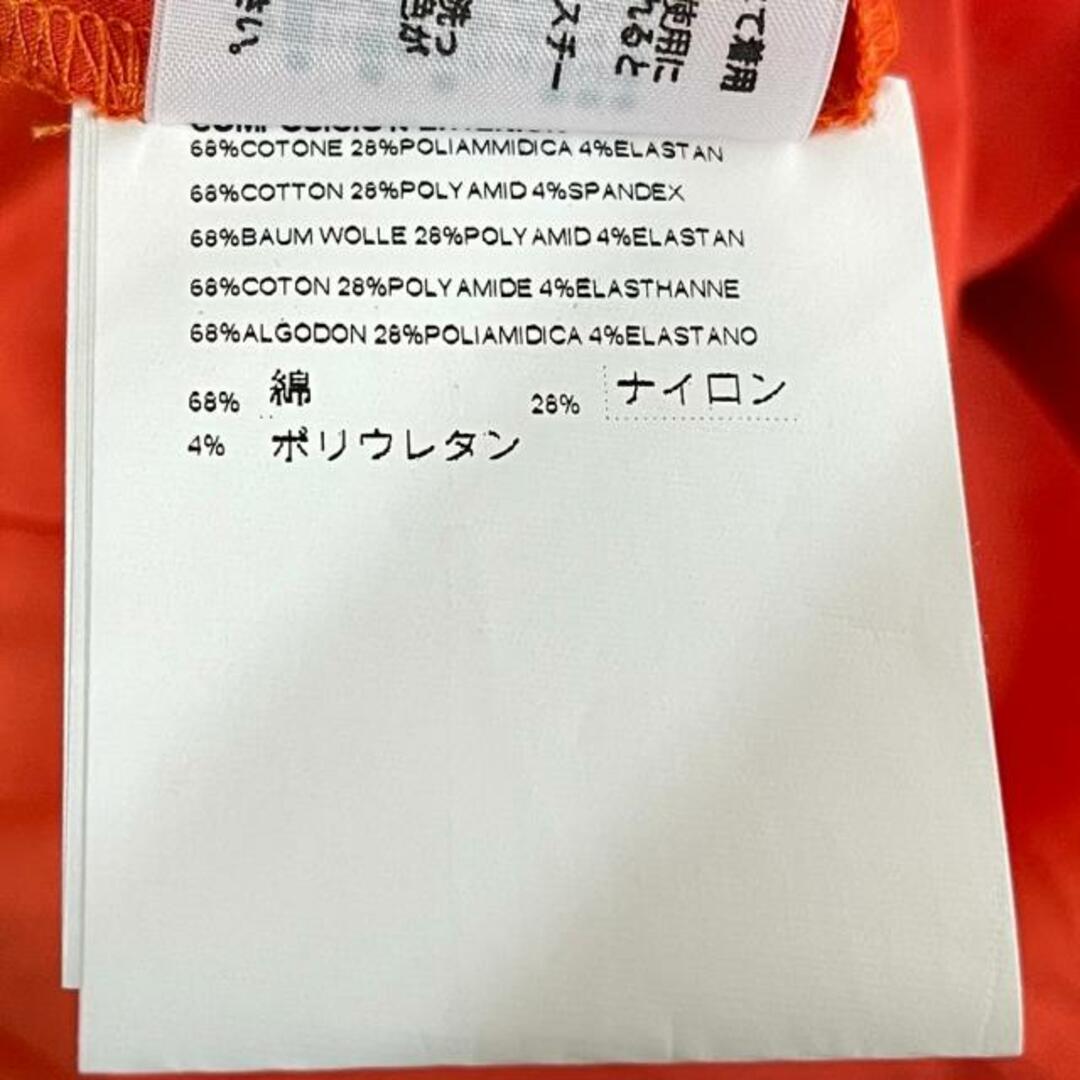 て着用
使用に
れると
ステー
洗っ
色が
68%COTONE 28%POLIAMMIDICA 4%ELASTAN
68%COTTON 28%POLYAMID 4%SPANDEX
68%BAUM WOLLE 28%POLYAMID 4%ELASTAN
68%COTON 28%POLYAMIDE 4%ELASTHANNE
68%ALGODON 28%POLIAMIDICA 4%ELASTANO
68% 綿 28% ナイロン
4% ポリウレタン